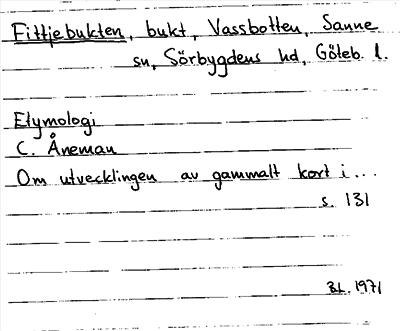 Fittjebukten, bukt, Vassbotten, Sanne
sn, Sörbygdens hd, Göteb. l.
Etymologi
C. Åneman
Om utvecklingen av gammalt kort i...
s. 131
BL. 1971